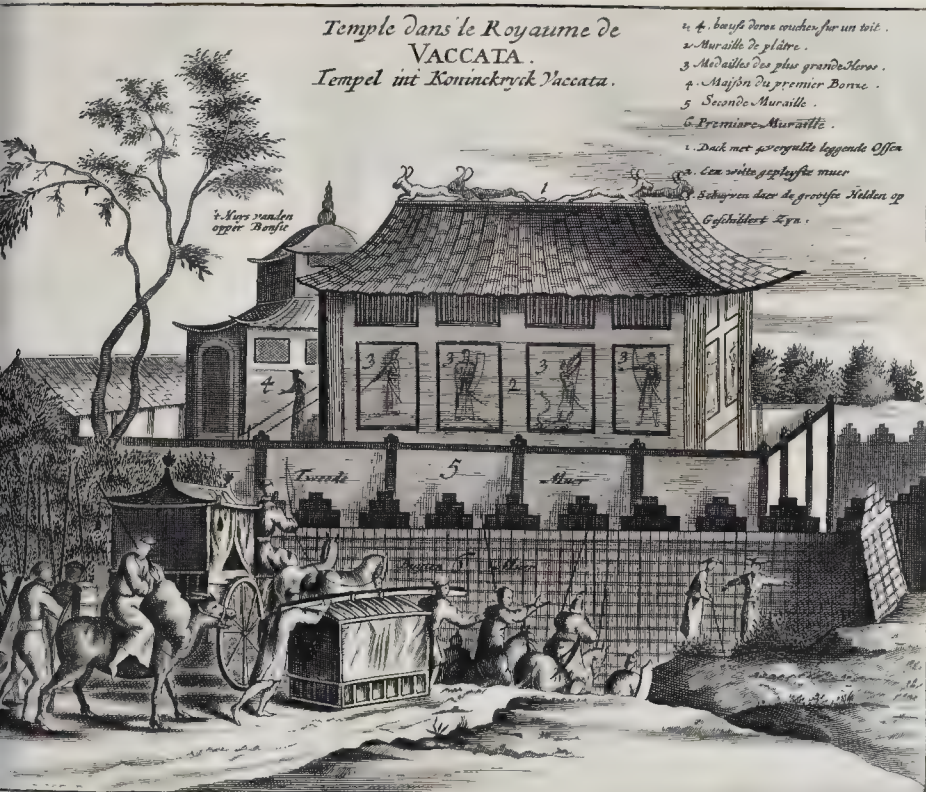 Temple dans le Royaume de
VACCATA.
Tempel int Koninckryck Vaccata.
1. 4. boeufs dorez couchez sur un toit.
2 Muraille de plâtre.
3 Medailles des plus grande Heros.
4. Maison du premier Bonze.
5 Seconde Muraille.
6 Premiere Muraille.
1. Dack met 4 vergulde leggende Ossen
2. Een witte gepleyste muer
3. Schuyven daer de grootste Helden op
Geschildert Zyn.
't Huys vanden
opper Bonsie
1
3
3
3
3
2
4
Tweede 5 Muer
Muer